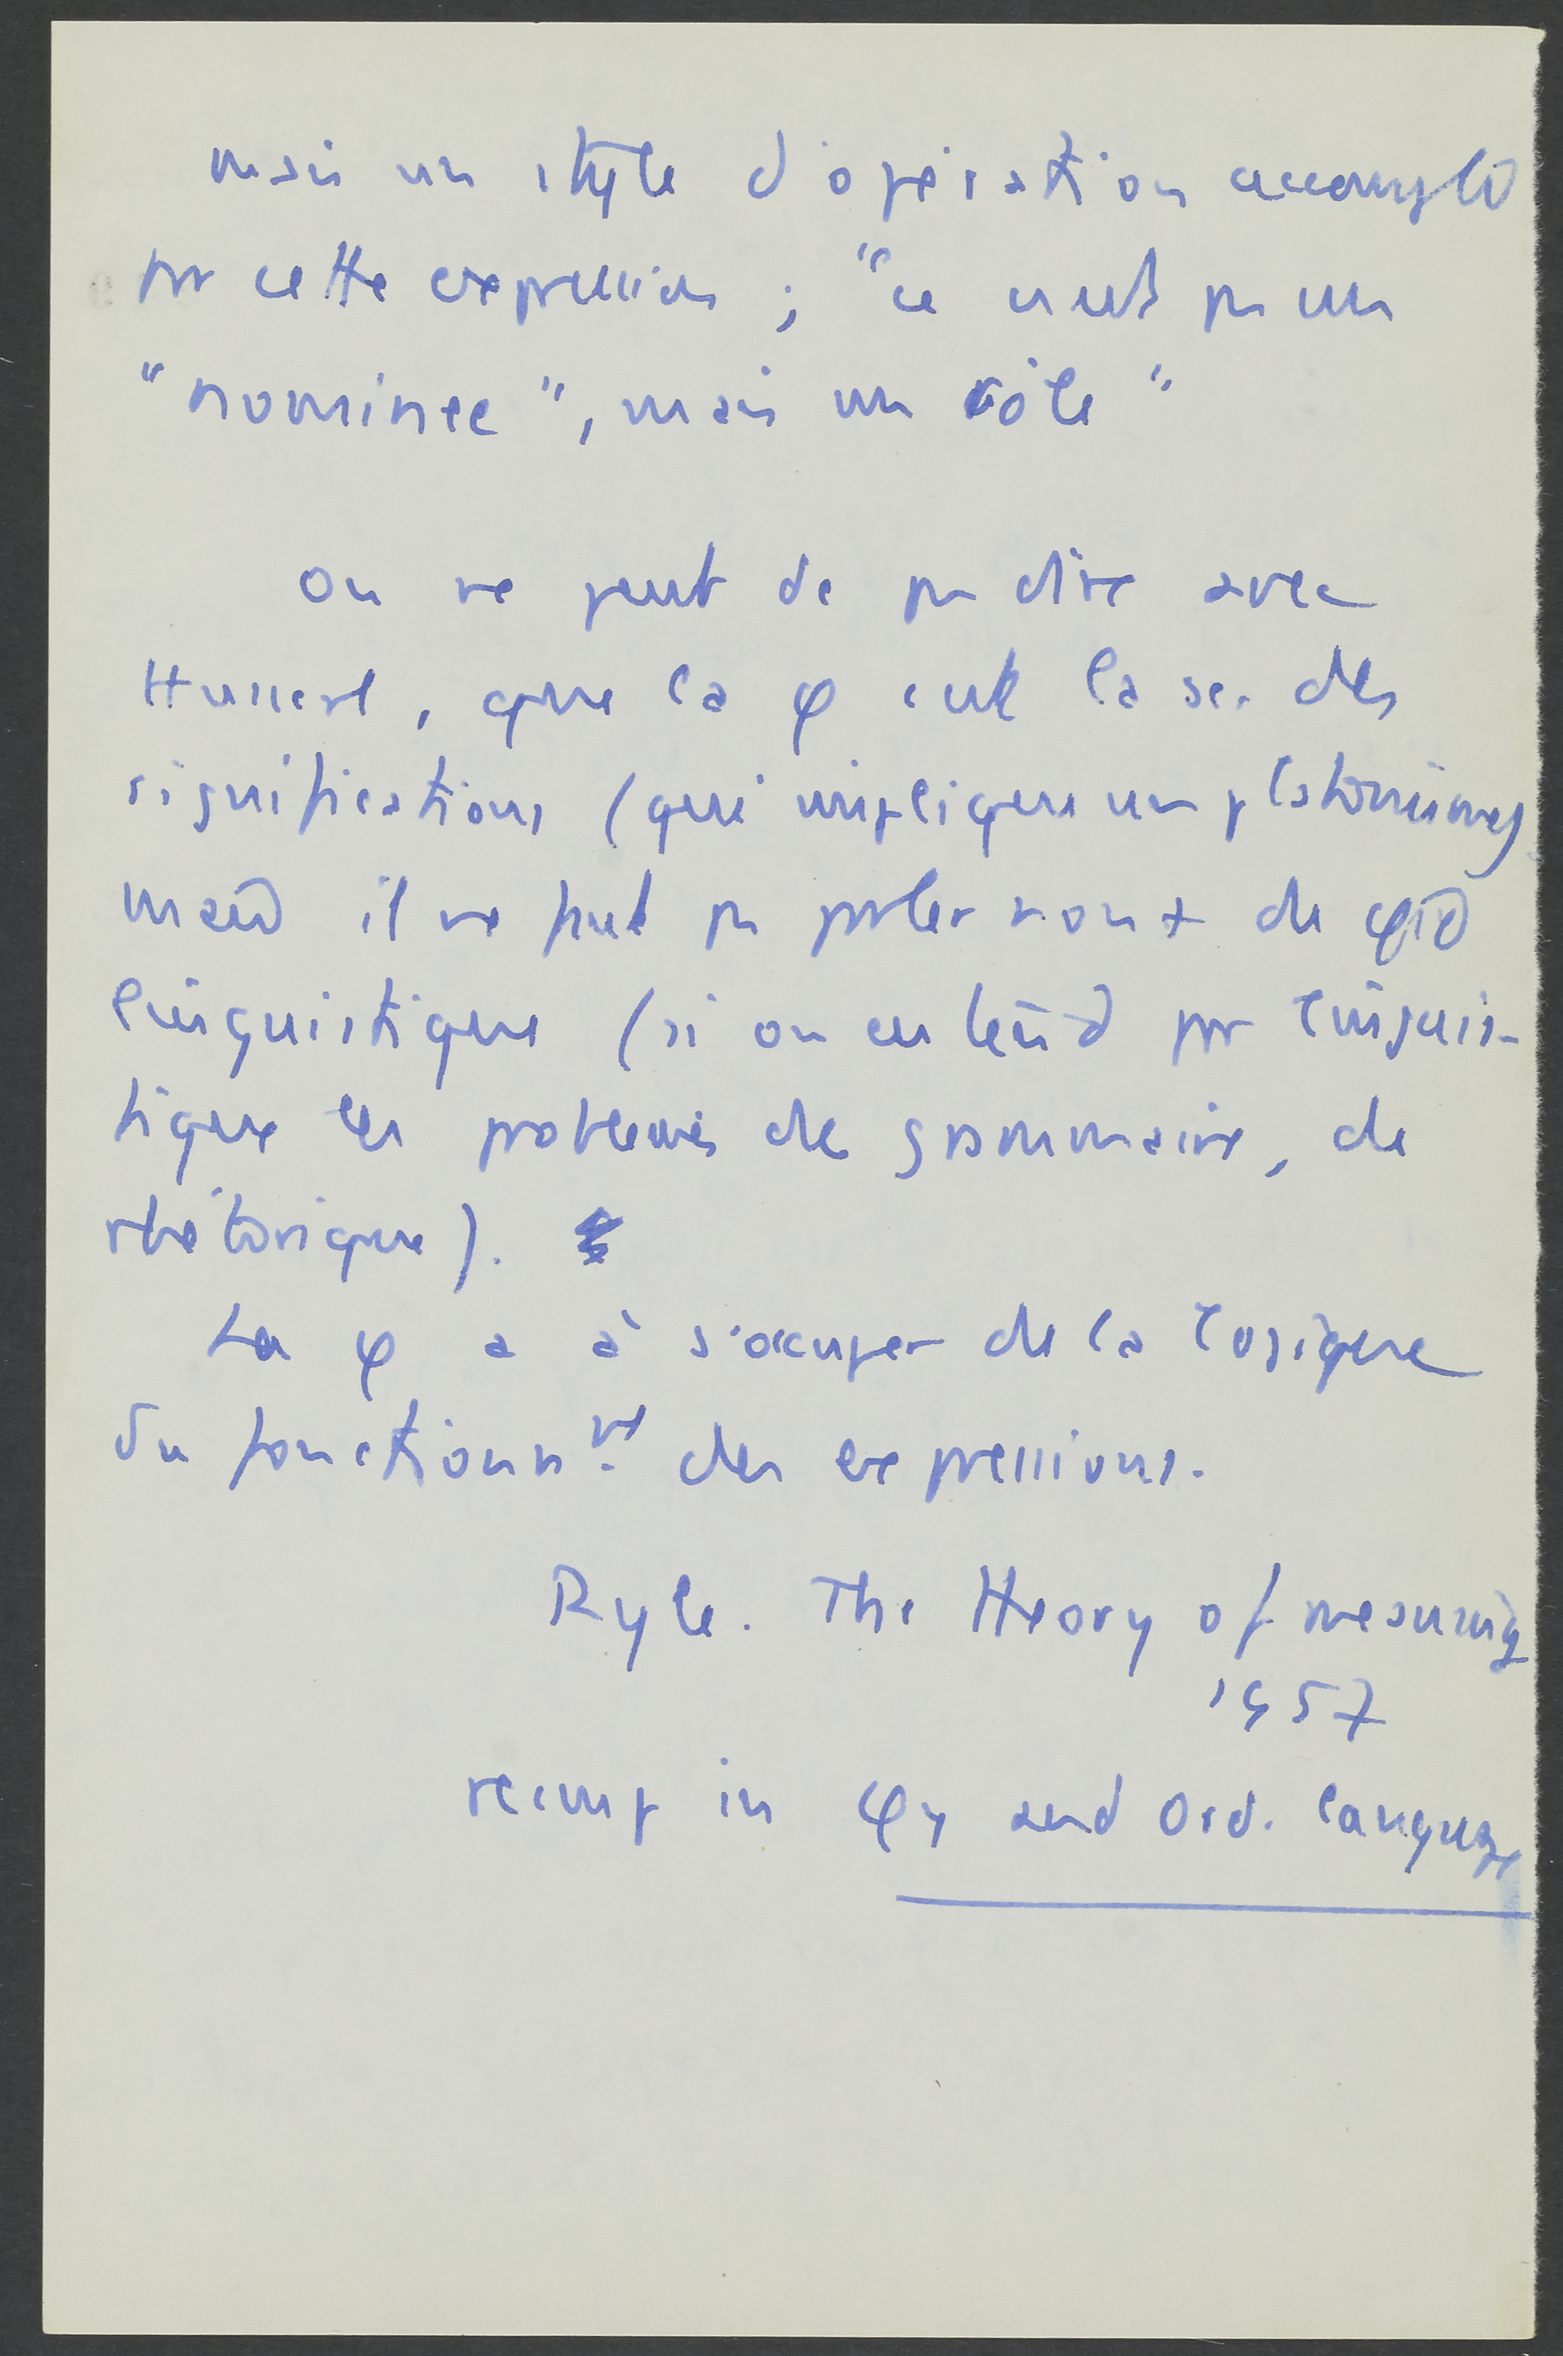 mais un style d'opération accompli
par cette expression ; "ce n'est pas un
"nominee", mais un rôle"
On ne peut dc pas dire avec
Husserl, que la φ est la sc. des
significations (qui implique un platonisme)
mais il ne faut pas parler non + de φie
linguistique (si on entend par linguis-
tique les problèmes de grammaire, de
rhétorique).
La φ a à s'occuper de la logique
du fonctionnt des expressions.
Ryle. The theory of meaning
1957
reimp in φy and Ord. language